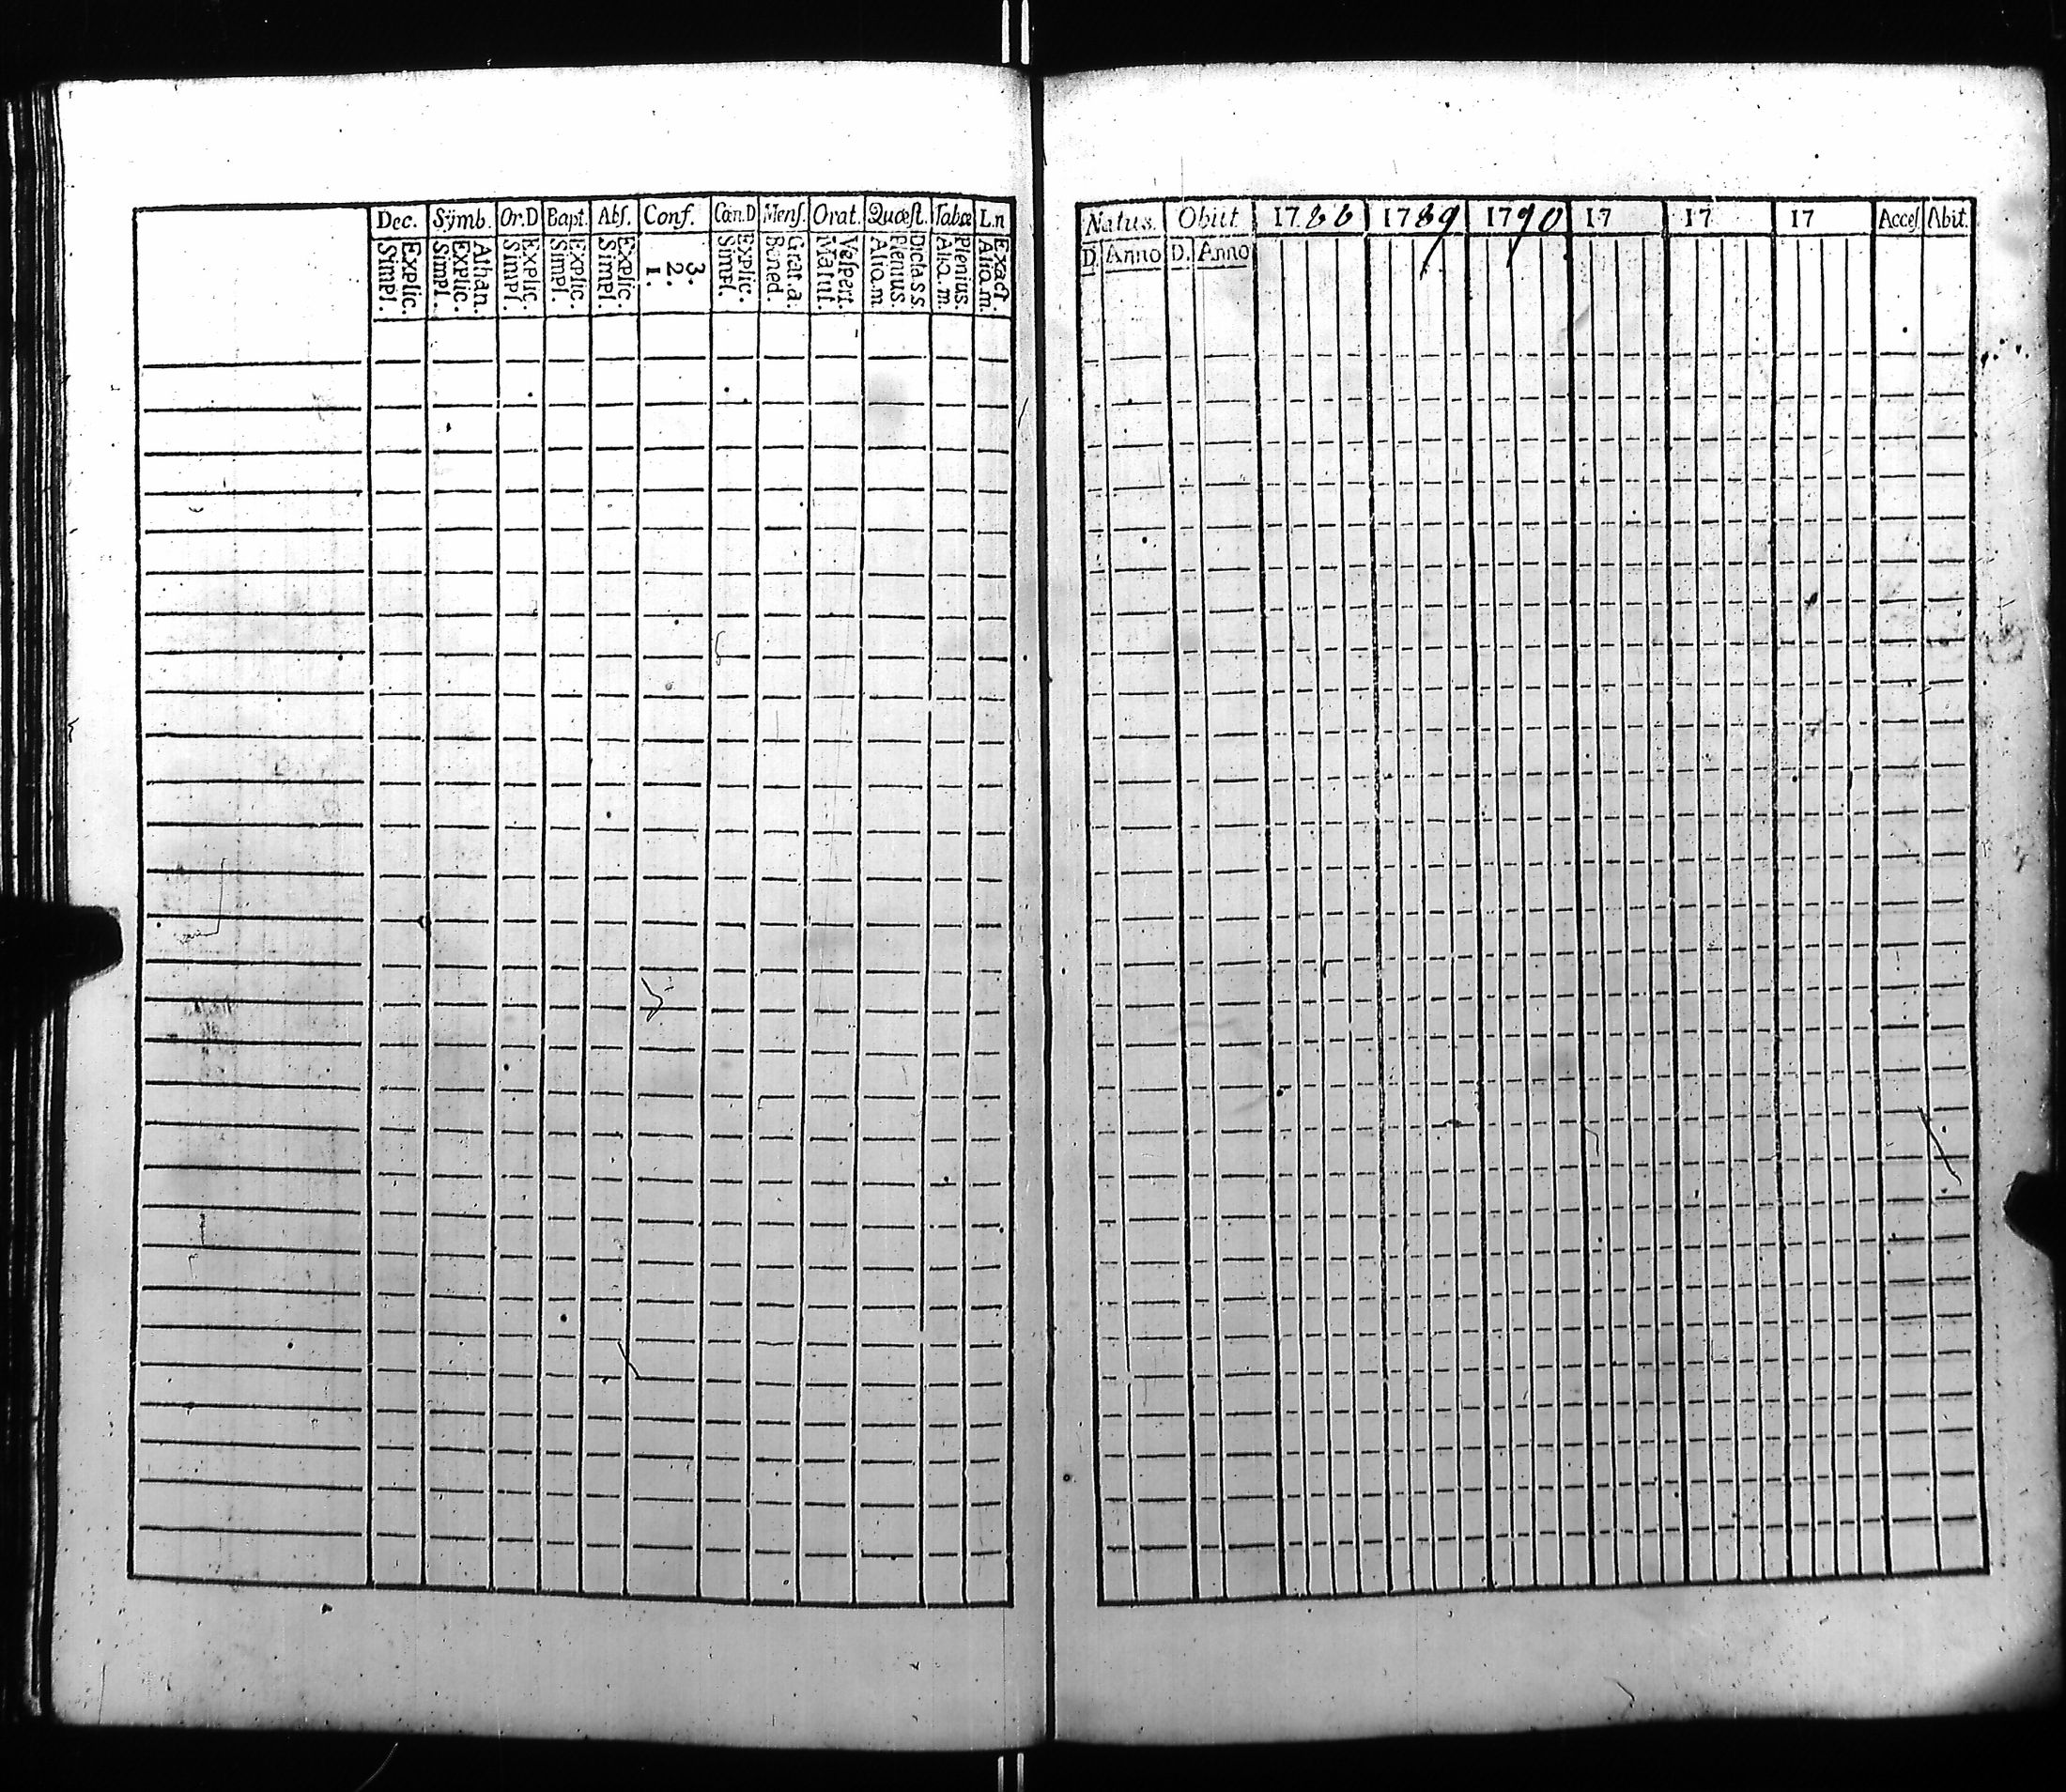 Dec. Sÿmb. Or.D Bapt. Abſ. Conf. Cœn.D Menſ. Orat. Quæſt. Tabæ L.n
Explic. Simpl. Athan. Explic. Simpl. Explic. Simpl. Explic. Simpl. Explic. Simpl. 3. 2. 1. Explic. Simpl. Grat. a. Bened. Veſpert. Matut. Dicta s.s. Plenius. Aliq. m. Plenius. Aliq. m. Exact. Aliq. m.
Natus. Obiit 1788 1789 1790 17 17 17 Acceſ Abit.
D. Anno D. Anno